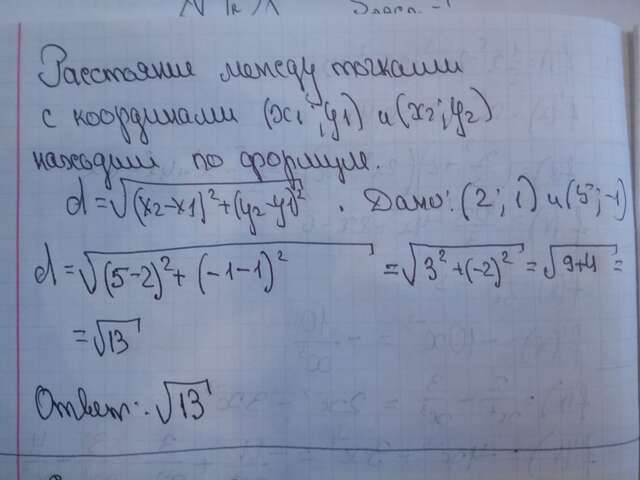 Расстояние между точками
с координатами (x1; y1) и (x2; y2)
находим по формуле:
d = √(x2-x1)² + (y2-y1)² . Дано: (2; 1) и (5; -1)
d = √(5-2)² + (-1-1)² = √3² + (-2)² = √9+4 =
= √13
Ответ: √13